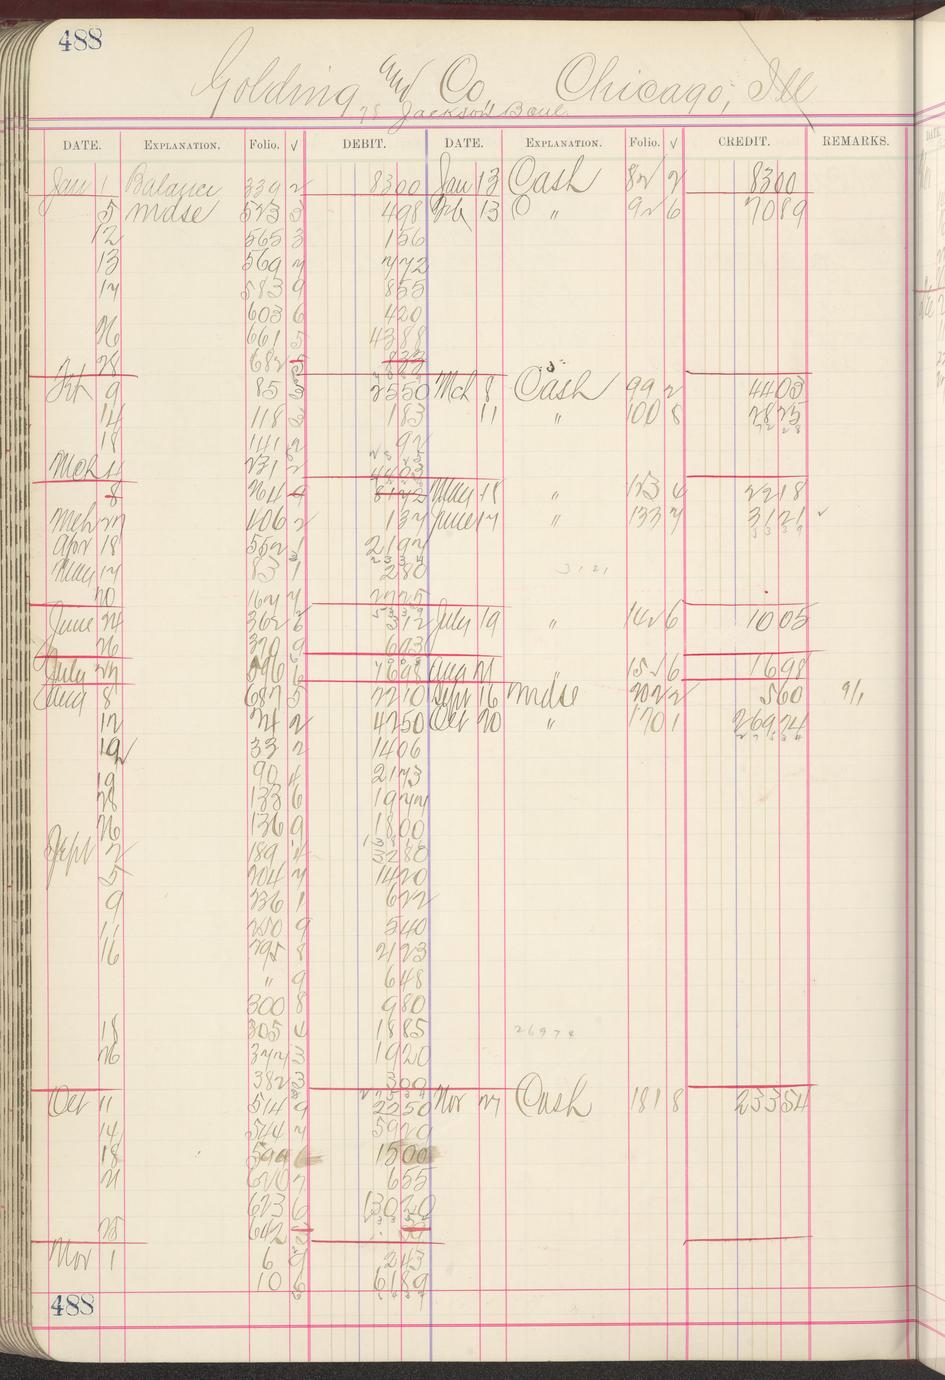 488
Golding and Co Chicago, Ill
78 Jackson Boul.
DATE. EXPLANATION. Folio. √ DEBIT. DATE. EXPLANATION. Folio. √ CREDIT. REMARKS.
Jan 1 Balance 339 2 8300 Jan 13 Cash 82 2 8300
5 mdse 523 3 498 Feb 13 " 92 6 7089
12 565 3 156
13 569 7 772
17 583 9 855
603 6 420
26 661 5 4388
28 682 5
Feb 9 85 3 2550 Mch 8 Cash 99 2 4403
14 118 3 183 11 " 100 8 2825
18 141 2 92
Mch 4 231 2
8 264 9 8142 May 18 " 123 4 2218
Mch 27 406 2 137 June 17 " 133 7 3121
Apr 18 552 1 2197
May 17 83 1 280
3121
20 167 7 2725
June 24 362 6 312 July 19 " 142 6 1005
26 370 9 693
July 27 596 6 1698 Aug 21 " 152 6 1698
Aug 8 687 5 2210 Sept 16 mdse 202 2 560 9/1
12 21 2 4250 Oct 20 " 170 1 26974
19 33 2 1406
19 90 4 2173
23 133 6 1977
26 136 9 1800
Sept 2 189 4 3280
5 204 7 1420
9 236 1 622
11 250 9 540
16 295 8 2123
" 9 648
300 8 980
18 305 4 1885
26974
26 377 3 1920
382 3 300
Oct 11 514 9 2250 Nov 27 Cash 181 8 23354
14 544 7 5929
18 590 6 1500
21 620 7 655
623 6 13020
25 642 5
Nov 1 6 9 243
10 6 6189
488